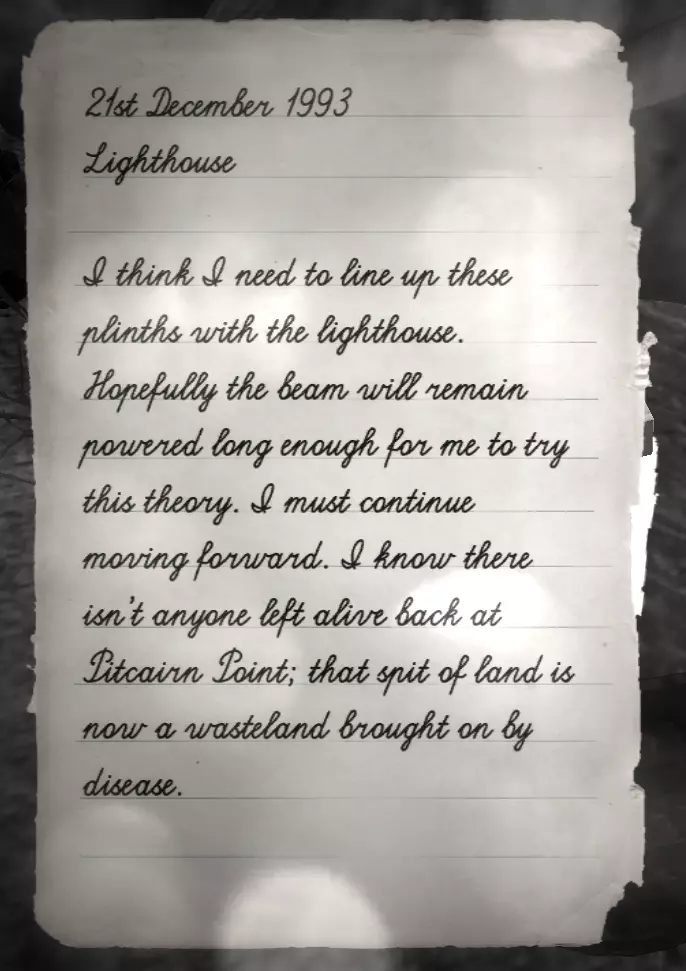 21st December 1993
Lighthouse
I think I need to line up these
plinths with the lighthouse.
Hopefully the beam will remain
powered long enough for me to try
this theory. I must continue
moving forward. I know there
isn't anyone left alive back at
Pitcairn Point; that spit of land is
now a wasteland brought on by
disease.